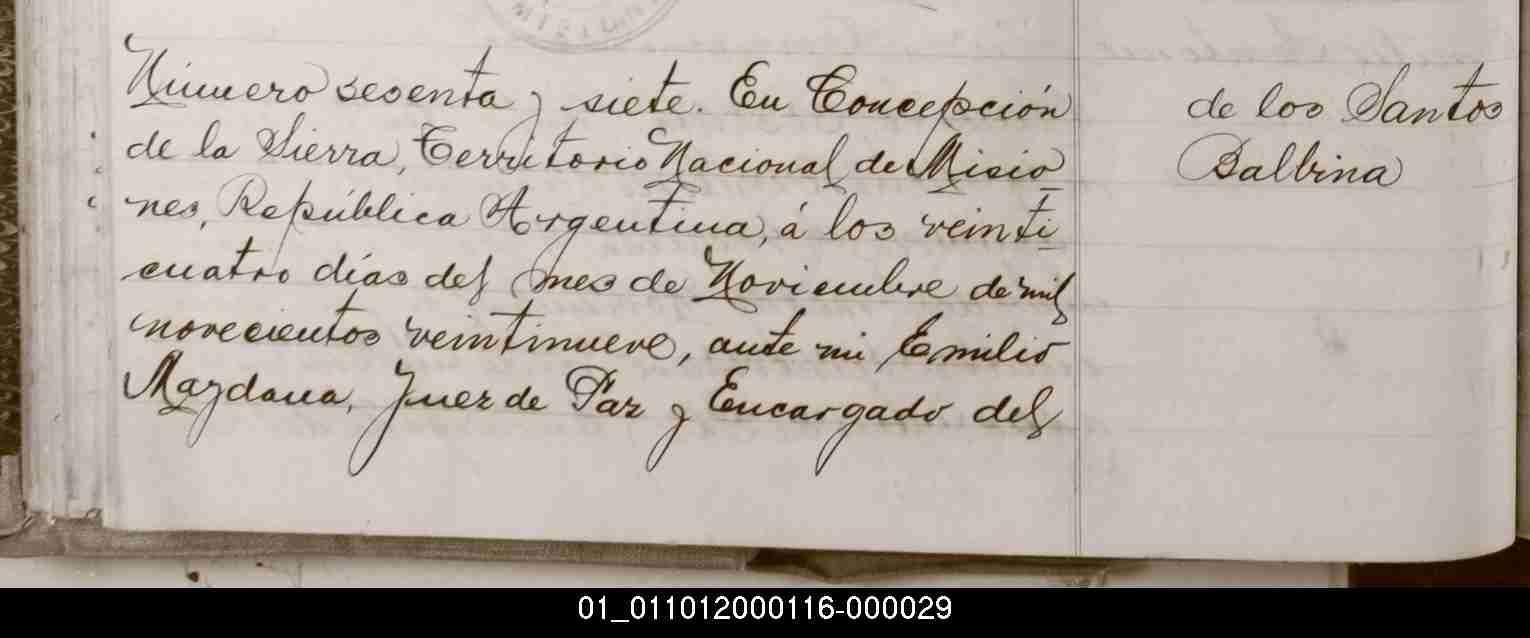 Número sesenta y siete. En Concepción
de la Sierra, Territorio Nacional de Misio_
nes, República Argentina, á los veinti_
cuatro días del mes de Noviembre de mil
novecientos veintinueve, ante mi Emilio
Mazdana, Juez de Paz y Encargado del
de los Santos
Balbina
01_011012000116-000029